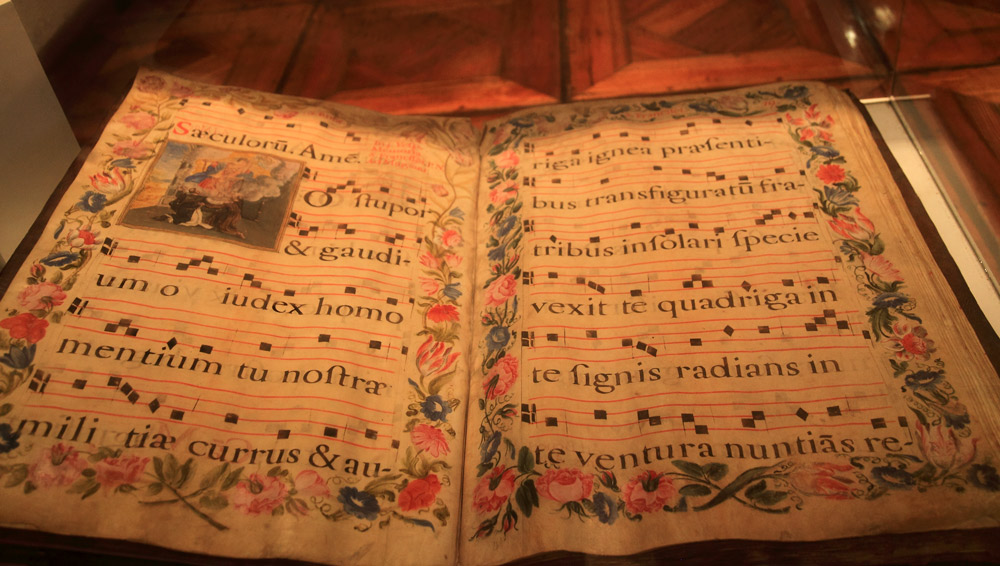 Sæculorū. Amē.
O ſtupor
& gaudi-
um o iudex homo
mentium tu noſtræ
mili tiæ currus & au-
riga ignea præſenti-
bus transfiguratū fra-
tribus in ſolari ſpecie
vexit te quadriga in
te ſignis radians in
te ventura nuntiās re-